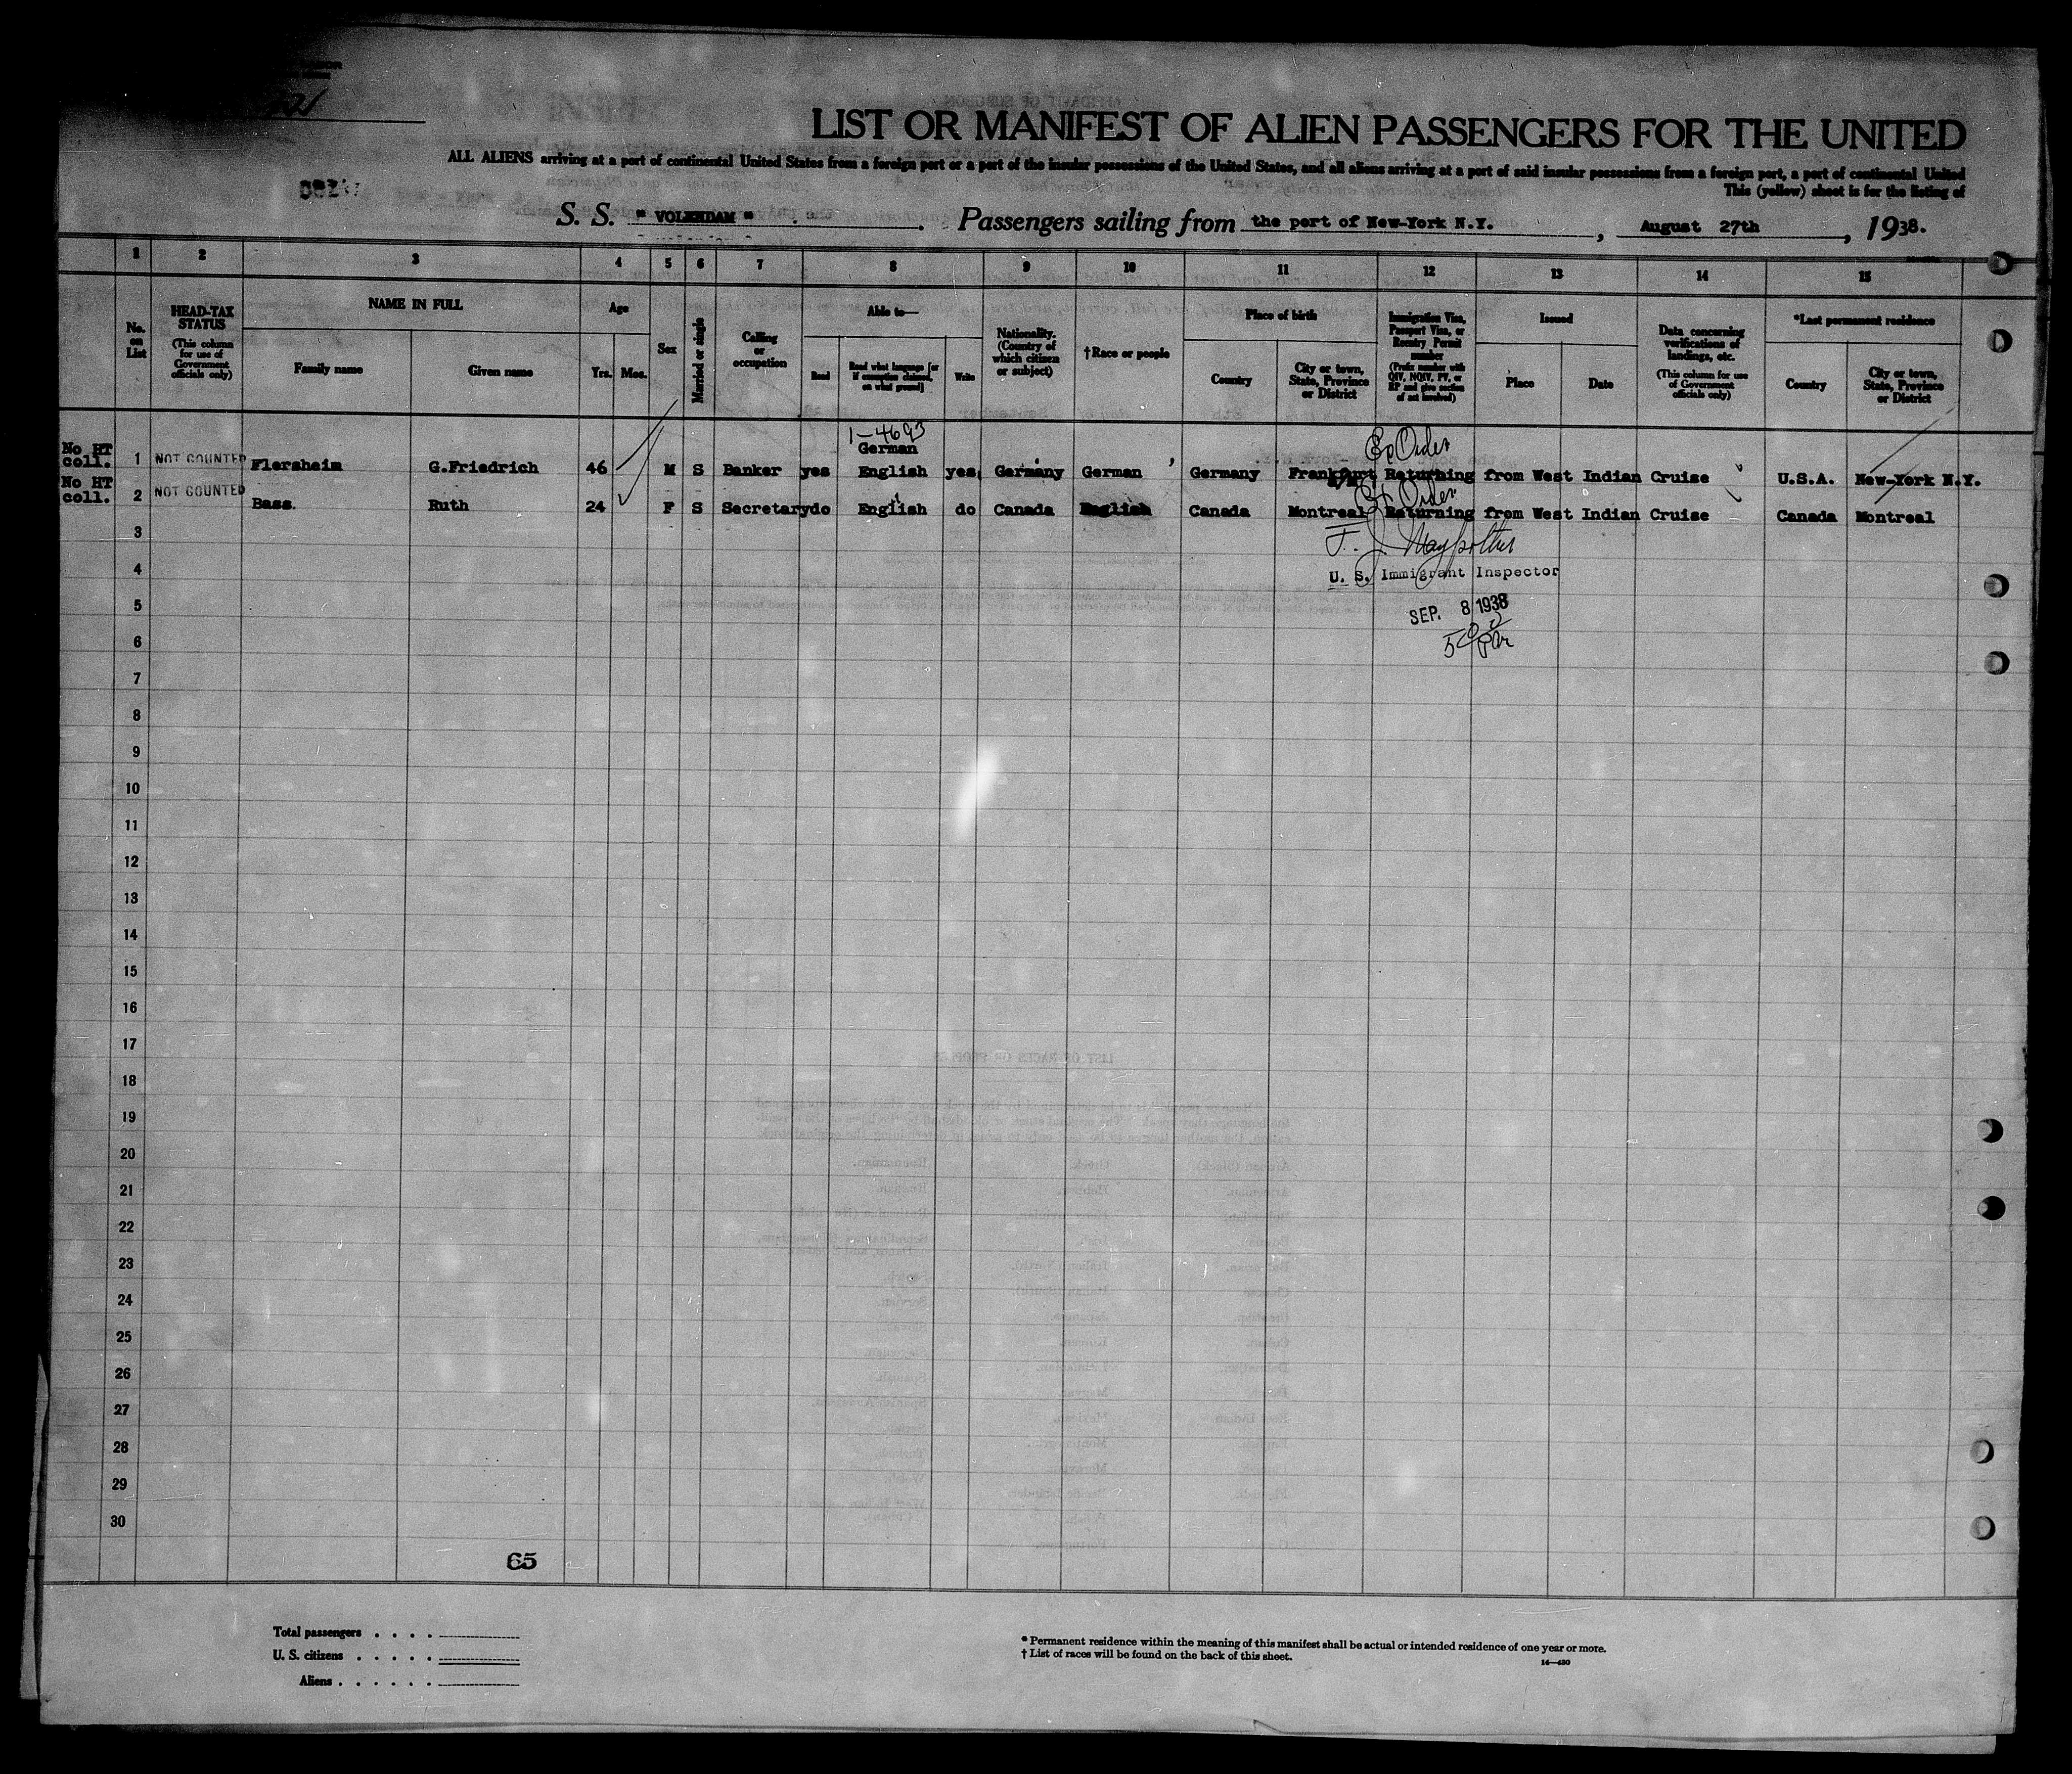 LIST OR MANIFEST OF ALIEN PASSENGERS FOR THE UNITED
ALL ALIENS arriving at a port of continental United States from a foreign port or a port of the insular possessions of the United States, and all aliens arriving at a port of said insular possessions from a foreign port, a port of continental United
This (yellow) sheet is for the listing of
S. S. " VOLENDAM " . Passengers sailing from the port of New-York N.Y. , August 27th , 1938.
1 2 3 4 5 6 7 8 9 10 11 12 13 14 15
No. on List
HEAD-TAX STATUS (This column for use of Government officials only)
NAME IN FULL
Family name Given name
Age
Yrs. Mos.
Sex
Married or single
Calling or occupation
Able to—
Read Read what language [or if exemption claimed, on what ground] Write
Nationality. (Country of which citizen or subject)
†Race or people
Place of birth
Country City or town, State, Province or District
Immigration Visa, Passport Visa, or Reentry Permit number (Prefix number with QIV, NQIV, PV, or RP and give section of act involved)
Issued
Place Date
Data concerning verifications of landings, etc. (This column for use of Government officials only)
*Last permanent residence
Country City or town, State, Province or District
1-4693
German
Ex Order
No HT coll. 1 NOT COUNTED Flersheim G.Friedrich 46 M S Banker yes English yes Germany German Germany Frankfurt Returning from West Indian Cruise U.S.A. New-York N.Y.
Ex Order
No HT coll. 2 NOT COUNTED Bass. Ruth 24 F S Secretary do English do Canada English Canada Montreal Returning from West Indian Cruise Canada Montreal
3
U. S. Immigrant Inspector
4
SEP. 8 1938
5
6
7
8
9
10
11
12
13
14
15
16
17
18
19
20
21
22
23
24
25
26
27
28
29
30
65
Total passengers . . . .
U. S. citizens . . . . .
Aliens . . . . . .
* Permanent residence within the meaning of this manifest shall be actual or intended residence of one year or more.
† List of races will be found on the back of this sheet.
14—430